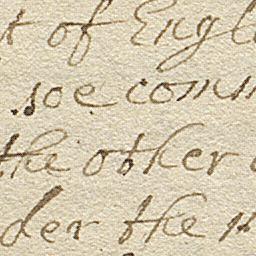 t of Engl
soe comm
the other
der the